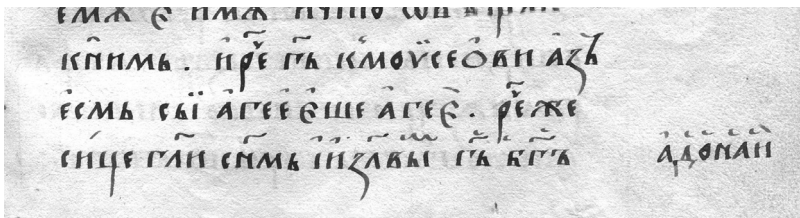 емѫ є҆ имѧ ичто
кн҃имь . и҆ рⷱ҇е г҃ь к҆моѵ̈сеѻви а҆зъ
е҆смь сыї а҆гее̑ є҆ше а҆гее̑ . рⷱ҇еже
си́це гл҃и сн҃мь і҆и҃злвы г҃ь б҃гъ а҆донаи